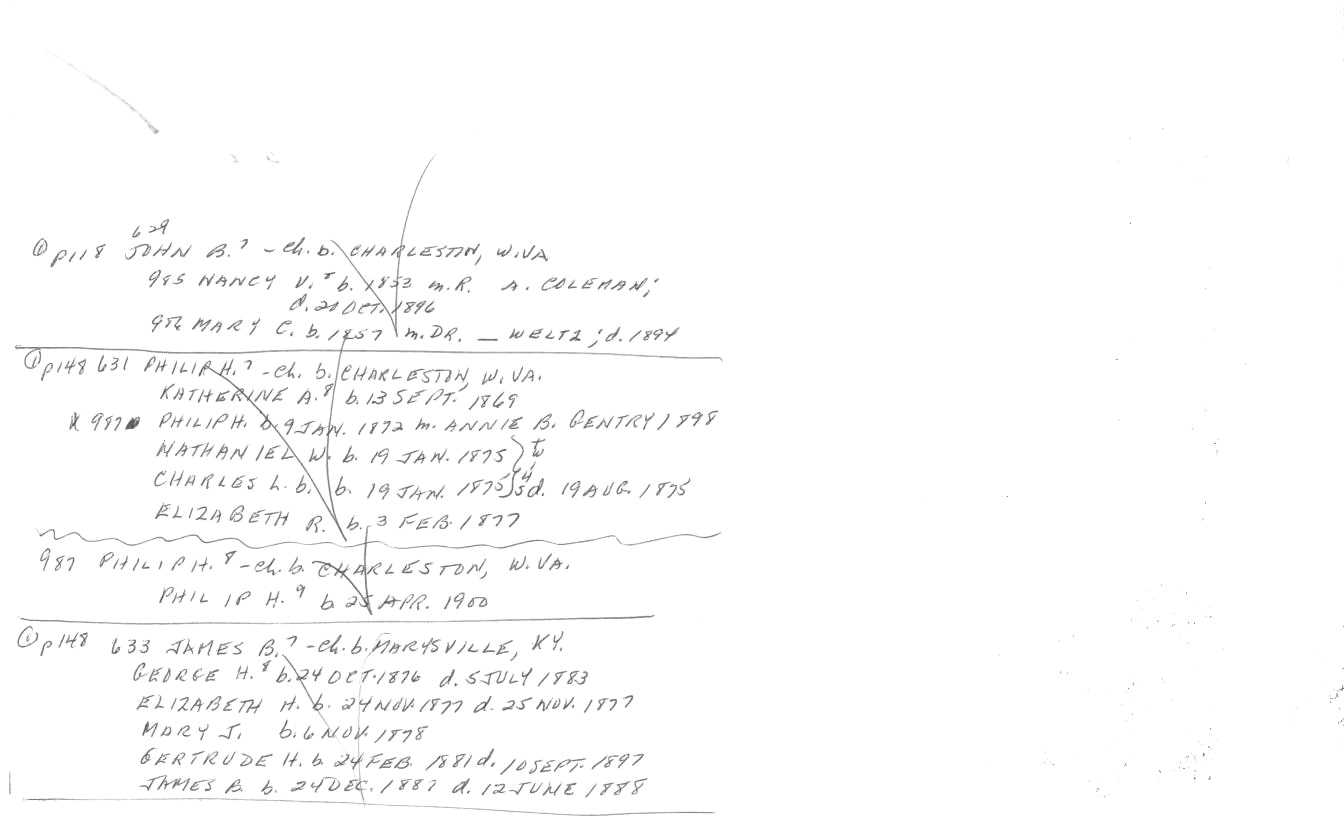 629
① p118 JOHN B.⁷ - Ch. b. CHARLESTON, W.VA
985 NANCY V.⁸ b. 1853 m. R. A. COLEMAN;
d. 20 OCT. 1896
986 MARY C. b. 1857 m. DR. — WELTZ; d. 1894
① p148 631 PHILIP H.⁷ - Ch. b. CHARLESTON, W.VA.
KATHERINE A.⁸ b. 13 SEPT. 1869
X 987 PHILIP H. b. 9 JAN. 1872 m. ANNIE B. GENTRY 1898
NATHANIEL W. b. 19 JAN. 1875 } tw
CHARLES L. b. b. 19 JAN. 1875 } d. 19 AUG. 1875
ELIZABETH R. b. 3 FEB. 1877
987 PHILIP H.⁸ - Ch. b. CHARLESTON, W.VA.
PHILIP H.⁹ b 25 APR. 1900
① p148 633 JAMES B.⁷ - Ch. b. MARYSVILLE, KY.
GEORGE H.⁸ b. 24 OCT. 1876 d. 5 JULY 1883
ELIZABETH H. b. 24 NOV. 1877 d. 25 NOV. 1877
MARY J. b. 6 NOV. 1878
GERTRUDE H. b. 24 FEB. 1881 d. 10 SEPT. 1897
JAMES B. b. 24 DEC. 1887 d. 12 JUNE 1888